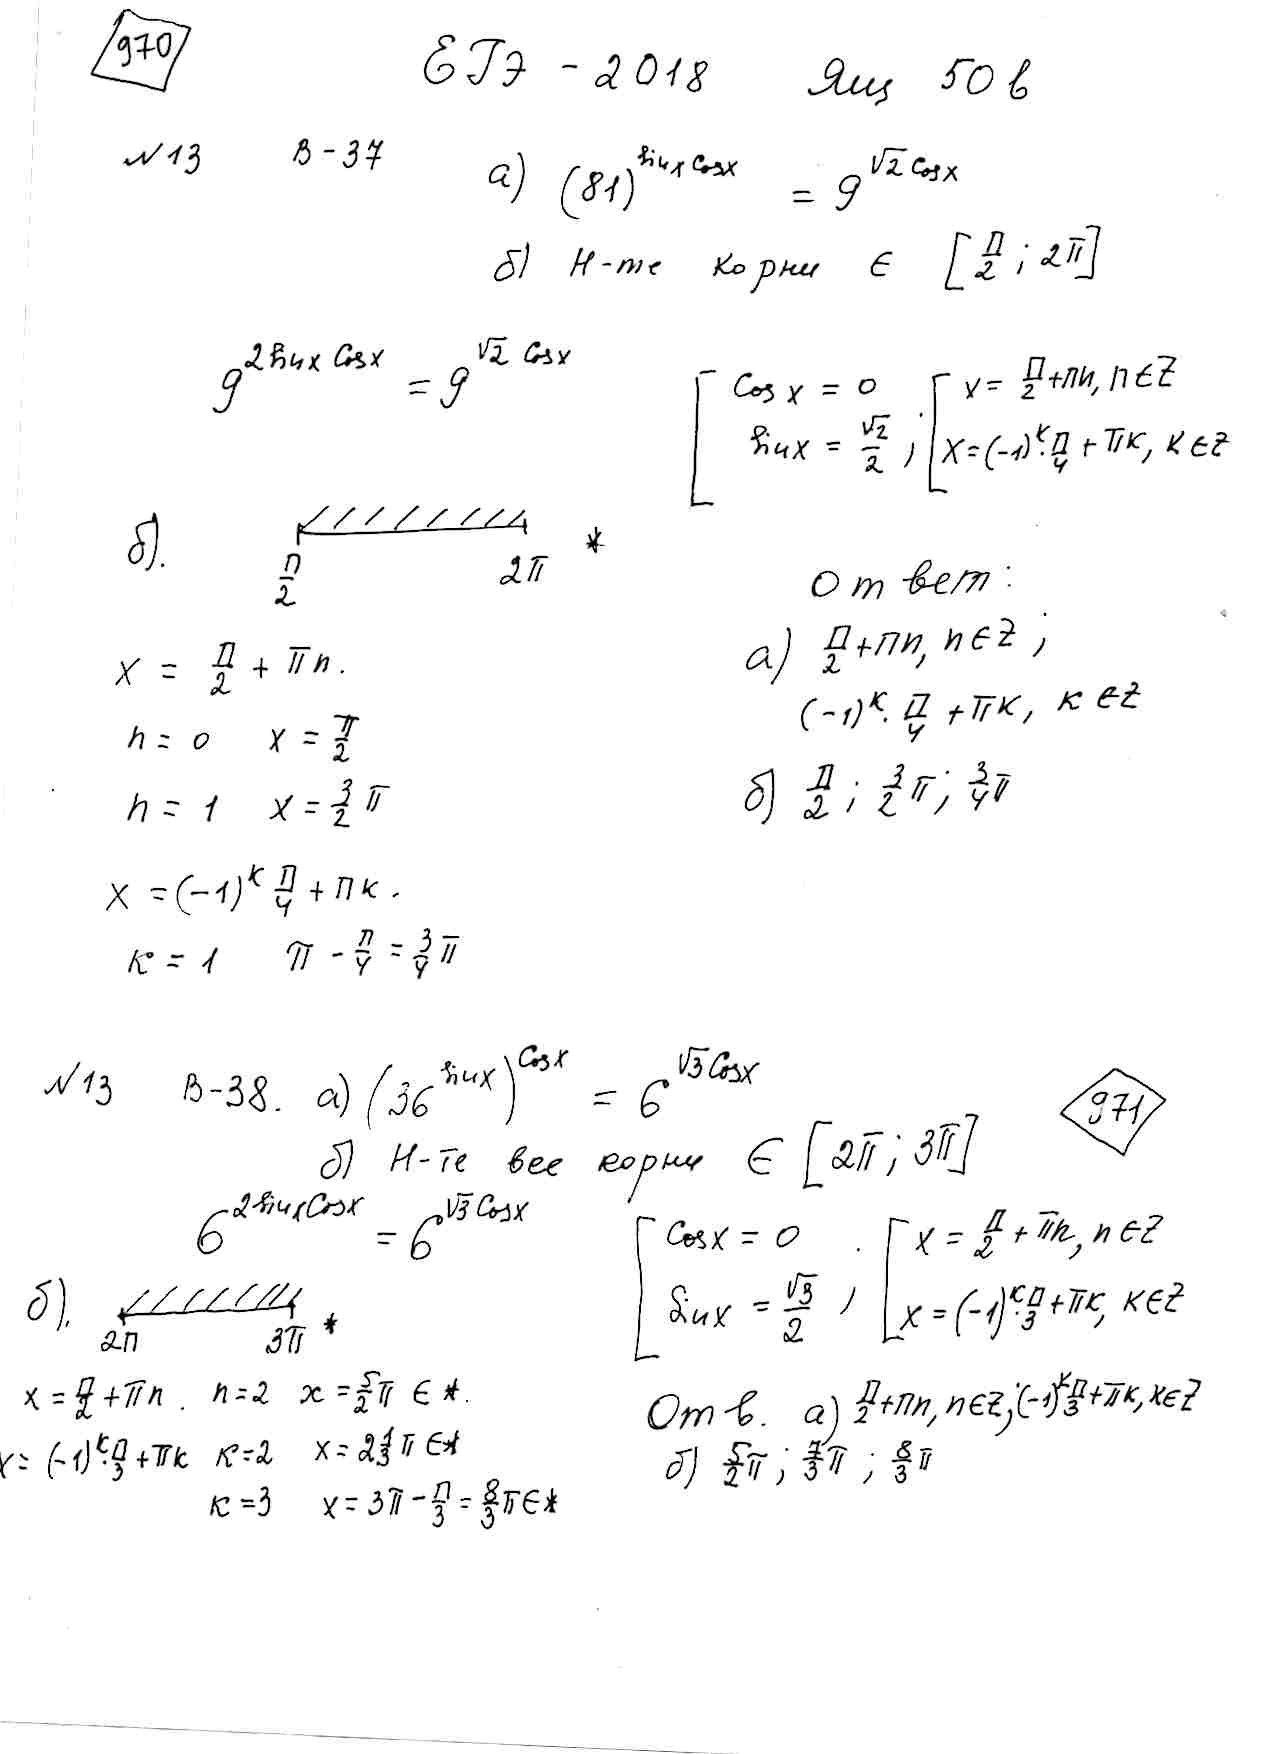 970
ЕГЭ - 2018 Ящ 50 в
№13 В-37 а) (81)^(sinx Cosx) = 9^(√2 Cosx)
б) Н-те корни ∈ [π/2 ; 2π]
9^(2sinx Cosx) = 9^(√2 Cosx)
[ Cos x = 0
sinx = √2/2 ; [ x = π/2 + πn, n∈Z
x = (-1)^k · π/4 + πk, k∈Z
б). π/2 2π *
x = π/2 + πn.
n = 0 x = π/2
n = 1 x = 3/2 π
x = (-1)^k π/4 + πk.
k = 1 π - π/4 = 3/4 π
Ответ:
а) π/2 + πn, n∈Z ;
(-1)^k · π/4 + πk, k∈Z
б) π/2 ; 3/2 π ; 3/4 π
971
№13 В-38. а) (36^(sinx))^(Cosx) = 6^(√3 Cosx)
б) Н-те все корни ∈ [2π ; 3π]
6^(2sinx Cosx) = 6^(√3 Cosx)
[ Cosx = 0
sinx = √3/2 ; [ x = π/2 + πn, n∈Z
x = (-1)^k · π/3 + πk, k∈Z
б). 2π 3π *
x = π/2 + πn. n=2 x = 5/2 π ∈ *.
x = (-1)^k · π/3 + πk k=2 x = 2 1/3 π ∈ *
k = 3 x = 3π - π/3 = 8/3 π ∈ *
Отв. а) π/2 + πn, n∈Z ; (-1)^k π/3 + πk, k∈Z
б) 5/2 π ; 7/3 π ; 8/3 π